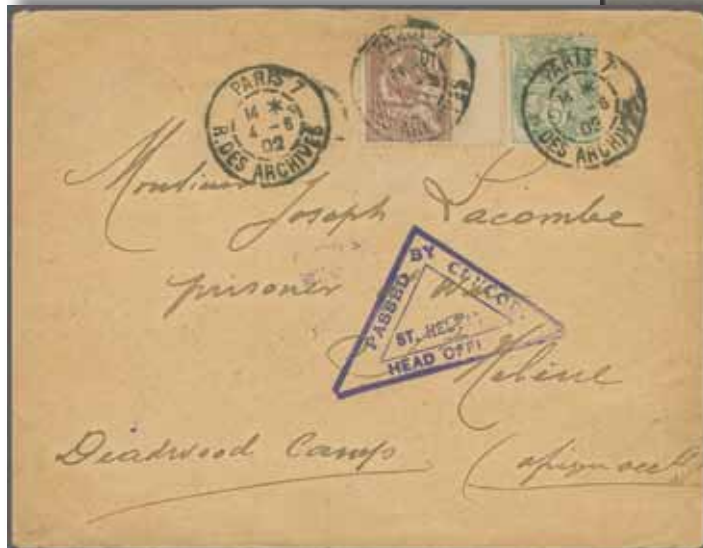 PARIS 7
14 *
4 - 6
02
R. DES ARCHIVES
PARIS 7
PARIS 7
14 *
4 - 6
02
R. DES ARCHIVES
Monsieur
Joseph Lacombe
prisoner
PASSED BY CENSOR
ST. HEL
HEAD OFFI
Hélène
Deadwood Camp